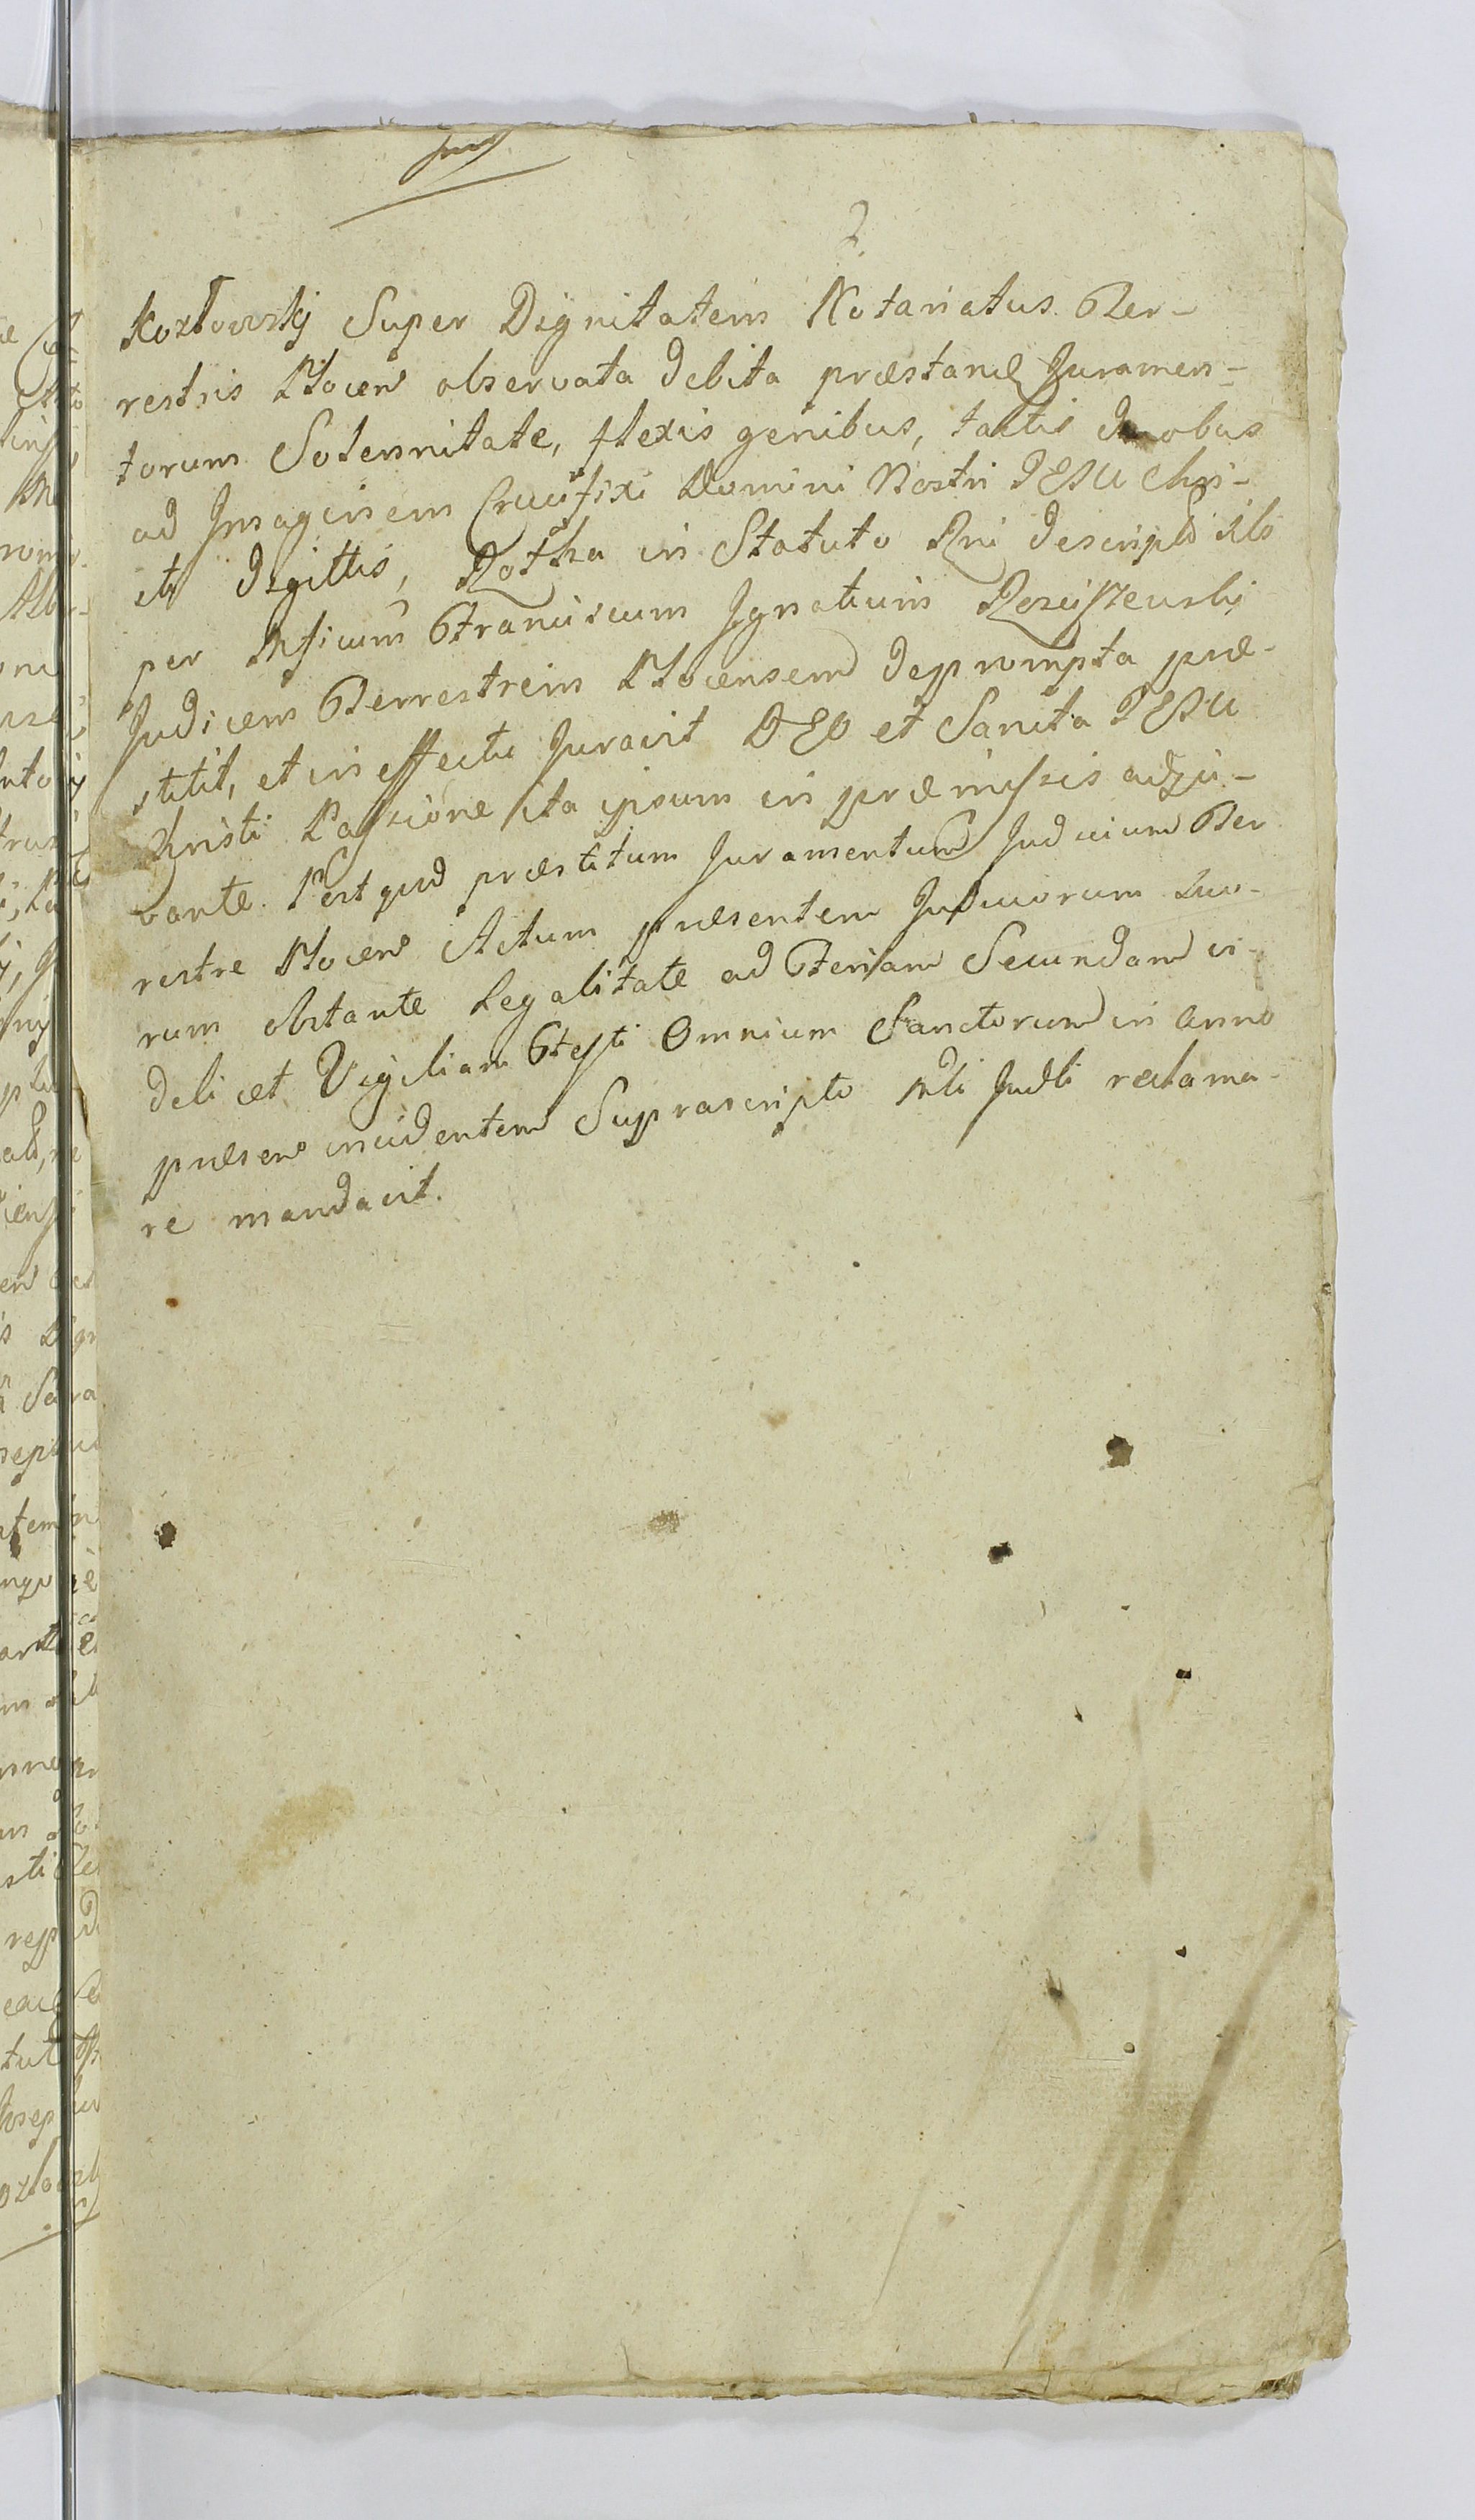 2
Kozłowskj Super Dignitatem Notariatus Ter-
restris Plocen observata debita præstand Juramen-
torum Solennitate, flexis genibus, tactis duobus
ad Imaginem Crucifixi Domini Nostri JESU Chri-
sti digittis, Rotha in Statuto Rni descripta sibi
per Mficum Franciscum Ignatium Rosciszewskj
Judicem Terrestrem Plocensem deprompta præ-
stitit, et in effectu Juravit DEO et Sancta JESU
Christi Passione ita ipsum in præmissis adju-
vante. Post quod præstitum Juramentum Judicium Ter
restre Plocen Actum præsentem Judiciorum Suo-
rum obstante Legalitate ad Feriam Secundam vi-
delicet Vigiliam Festi Omnium Sanctorum in Anno
præsen incidentem Suprascripto Mli Judli reclama-
re mandavit.